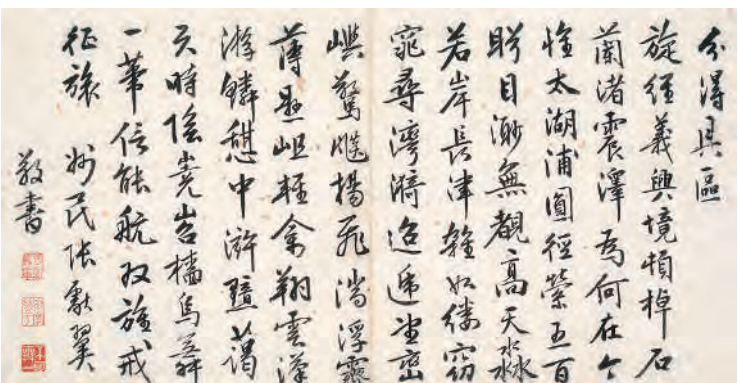 分得具區
旋經義興境頓棹石
蘭渚震澤為何在今
惟太湖浦圓徑縈五百
眄目渺無覩高天淼
若岸長津雜如縷窈
窕尋灣漪迢遞望巒
嶼驚飈揚飛湍浮霄
薄懸岨輕禽翔雲漢
游鱗憩中滸黯藹
天時陰嶤岧檣烏舞
一葦信能航双旌戒
征旅 州民張獻翼
敬書